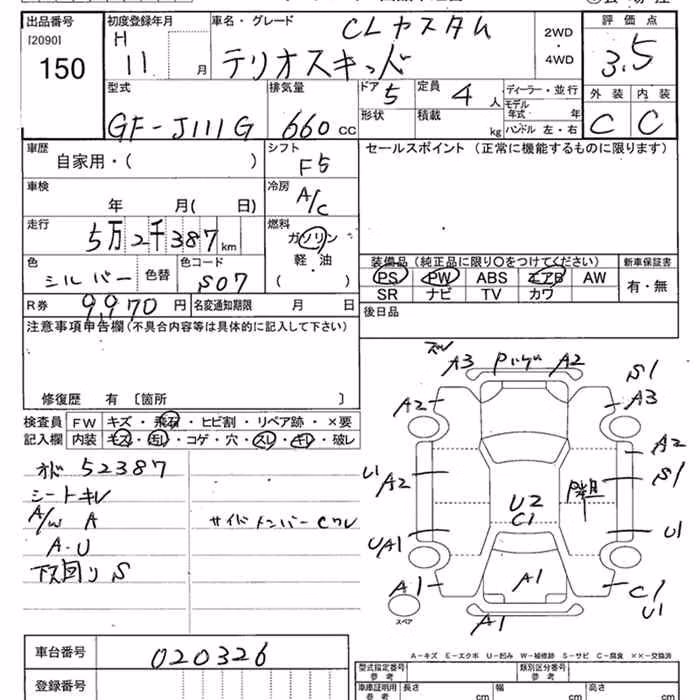 出品番号 初度登録年月 車名・グレード CLカスタム 2WD・4WD 評価点
[2090] 150 H 11 月 テリオスキッド 3.5
型式 GF-J111G 排気量 660 CC
ドア 5 定員 4 人 ディーラー・並行
形状 積載 kg モデル年式 年
ハンドル 左・右
外装 内装
C C
車歴 自家用・( ) シフト F5 セールスポイント (正常に機能するものに限ります)
車検 年 月( 日) 冷房 A/C
走行 5万2千387 km 燃料 ガソリン 軽油 ( )
色 シルバー 色替 色コード S07
装備品 (純正品に限り○をつけてください) 新車保証書
PS PW ABS エアB AW 有・無
SR ナビ TV カワ
R券 9,970 円 名変通知期限 月 日 後日品
注意事項申告欄 (不具合内容等は具体的に記入して下さい)
修復歴 有 〔箇所 〕
検査員 FW キズ・飛石・ヒビ割・リペア跡・×要
記入欄 内装 キズ・汚レ・コゲ・穴・スレ・キレ・破レ
オド 52387
シートキレ
A/W A サイドメンバーCワレ
A・U
下回りS
A3 A2 S1
A2 A3
A2
U1 A2 S1
U2
C1
UA1 U1
A1 A1 C1
U1
スペア A1
A-キズ E-エクボ U-凹み W-補修跡 S-サビ C-腐食 ××-交換済
車台番号 020326
登録番号
型式指定番号 参考 類別区分番号 参考
車庫証明用 参考 長さ cm 幅 cm 高さ cm